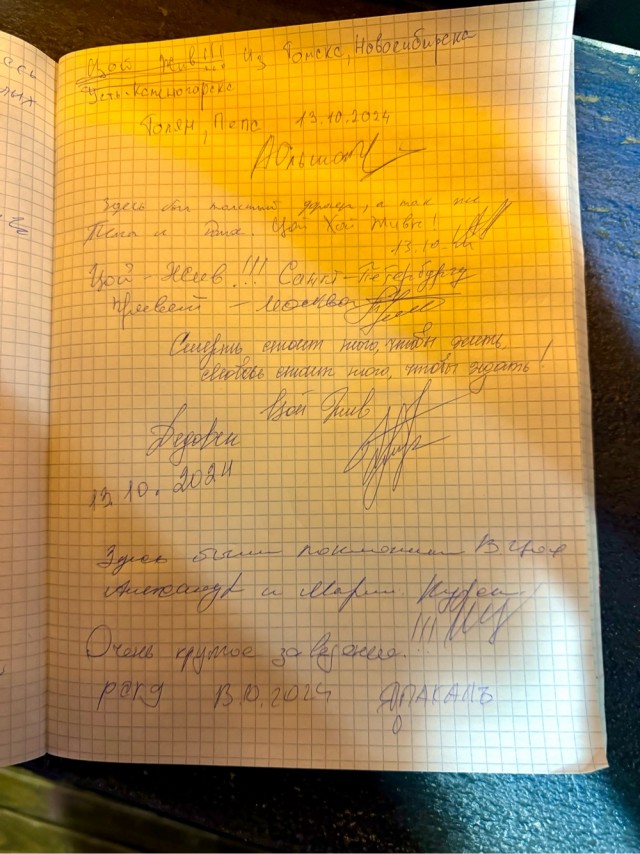 Цой Жив!!! из Томска, Новосибирска
Усть-Каменогорска
Толян, Пепс 13.10.2024
Здесь был толстый фраер, а так же
Цой Хой Живы!
13.10.24
Цой - Жив!!! Санкт-Петербургу
привет - Москва
Смерть стоит того, чтобы жить,
любовь стоит того, чтобы ждать!
Цой Жив
13.10.2024
Здесь были поклонники В Цоя
Александр и Мария
Очень крутое заведение!!!
13.10.2024 ЯПАКАПЪ